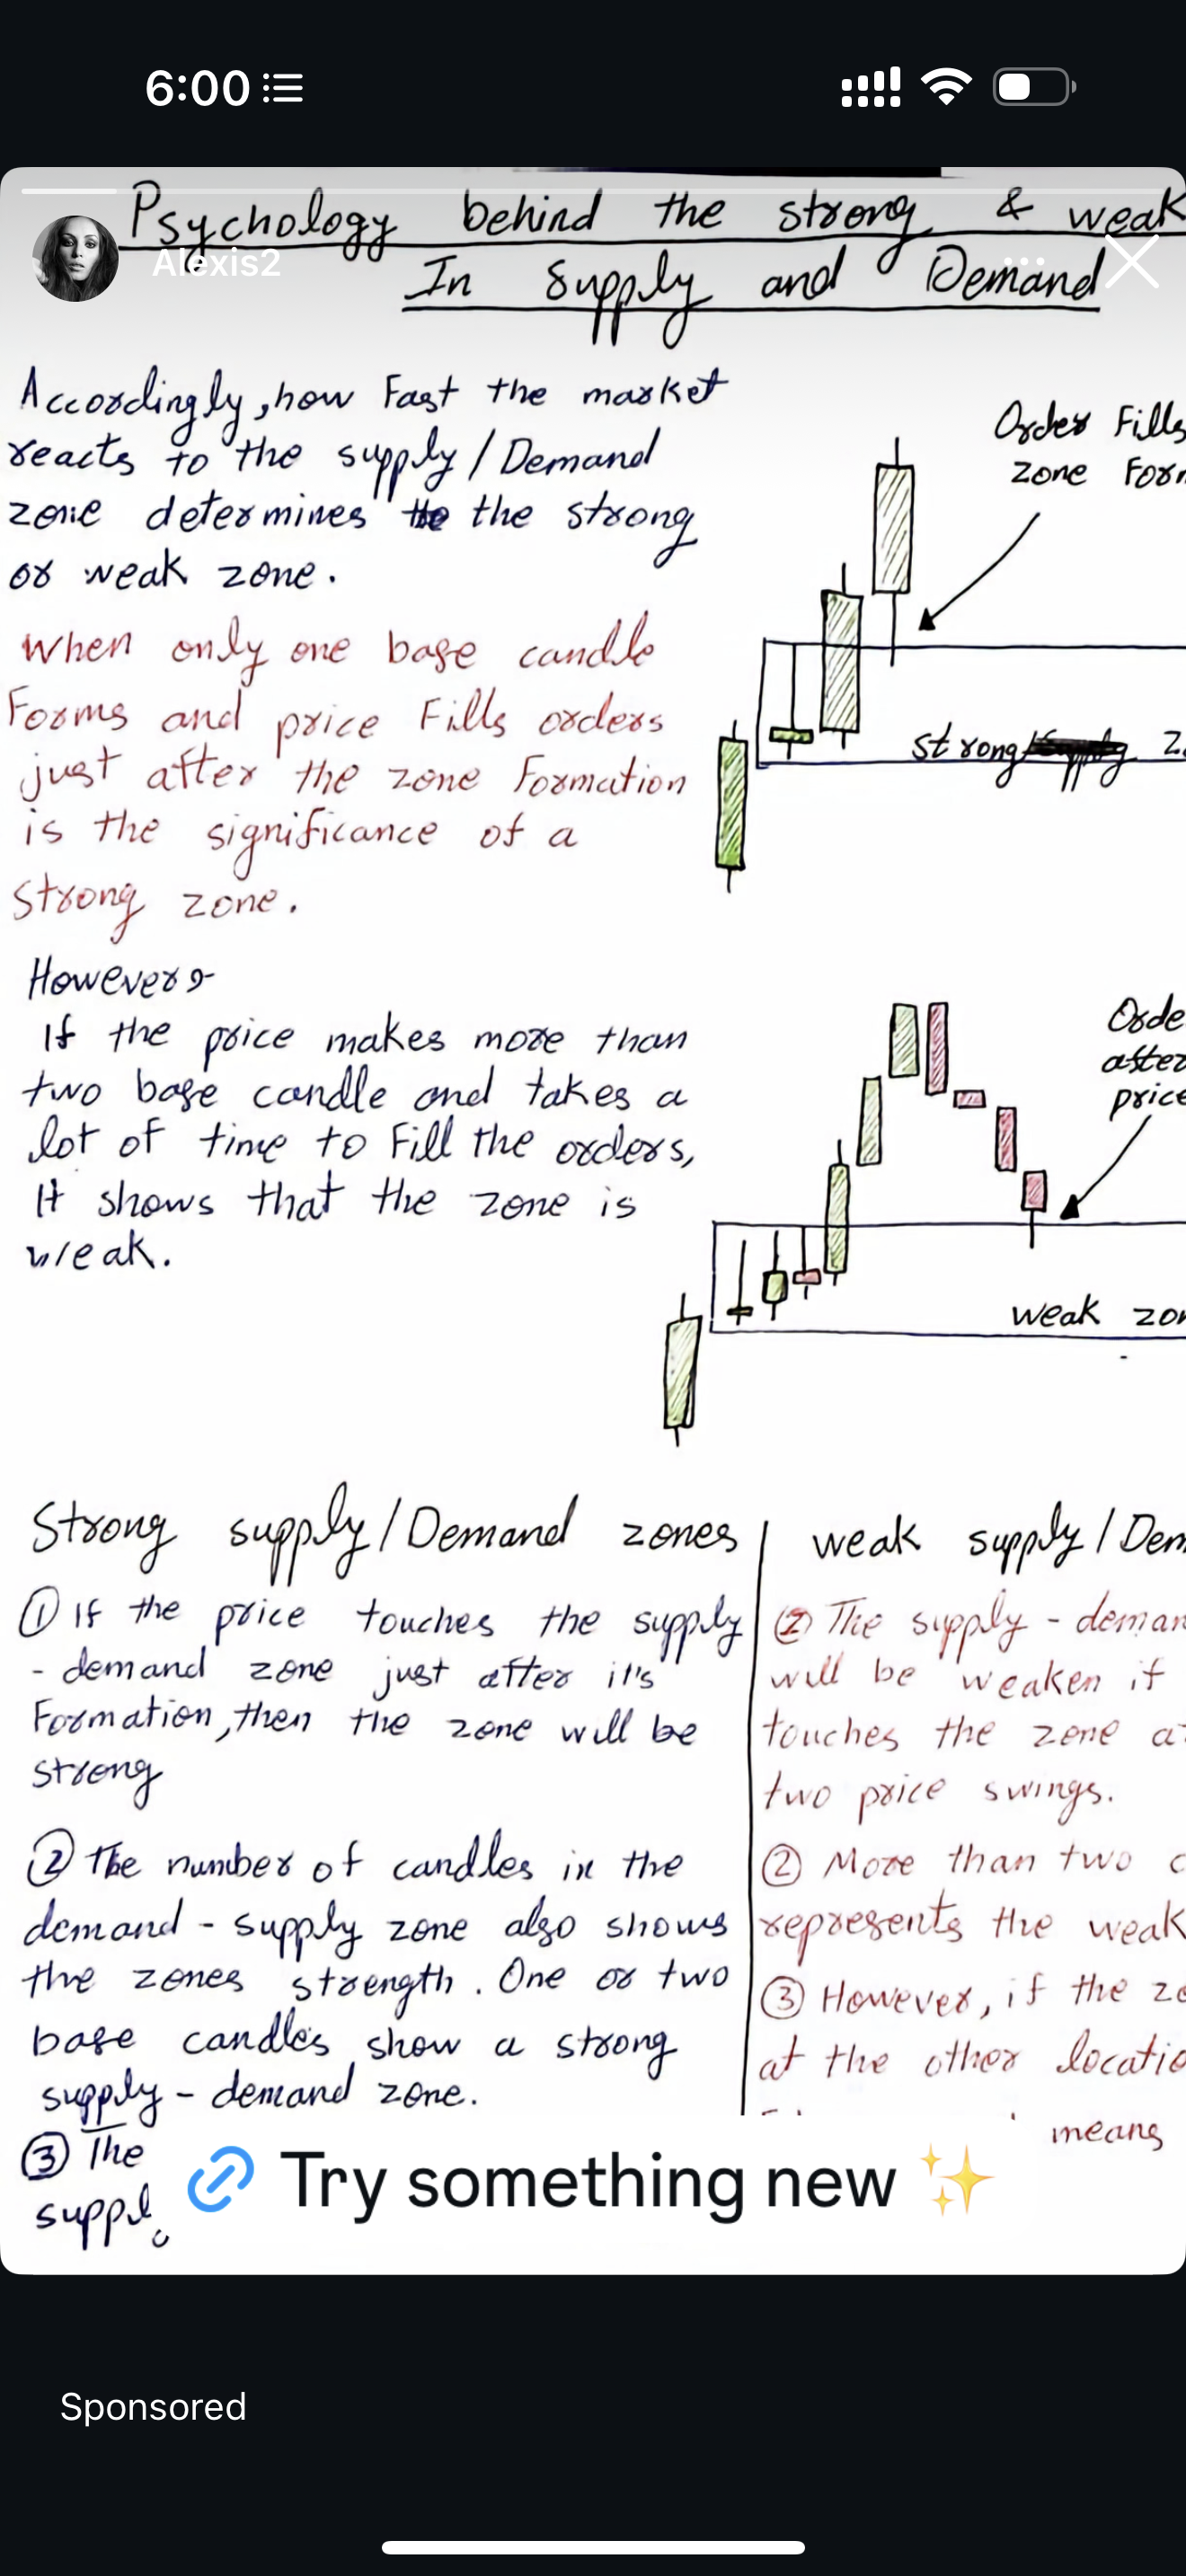 6:00
Psychology behind the strong & weak
Alexis2
In Supply and Demand
Accordingly, how Fast the market
reacts to the supply / Demand
zone determines the the strong
or weak zone.
When only one base candle
Forms and price Fills orders
just after the zone Formation
is the significance of a
strong zone.
Order Fills
zone For
strong
However,
If the price makes more than
two base candle and takes a
lot of time to Fill the orders,
It shows that the zone is
weak.
Orde
after
price
weak zon
Strong supply / Demand zones
① If the price touches the supply
- demand zone just after it's
Formation, then the zone will be
strong
② The number of candles in the
demand - supply zone also shows
the zones strength. One or two
base candles show a strong
supply - demand zone.
③ The
suppl
weak supply / Dem
② The supply - deman
will be weaken if
touches the zone a
two price swings.
② More than two c
represents the weak
③ However, if the zo
at the other locatio
means
Try something new ✨
Sponsored